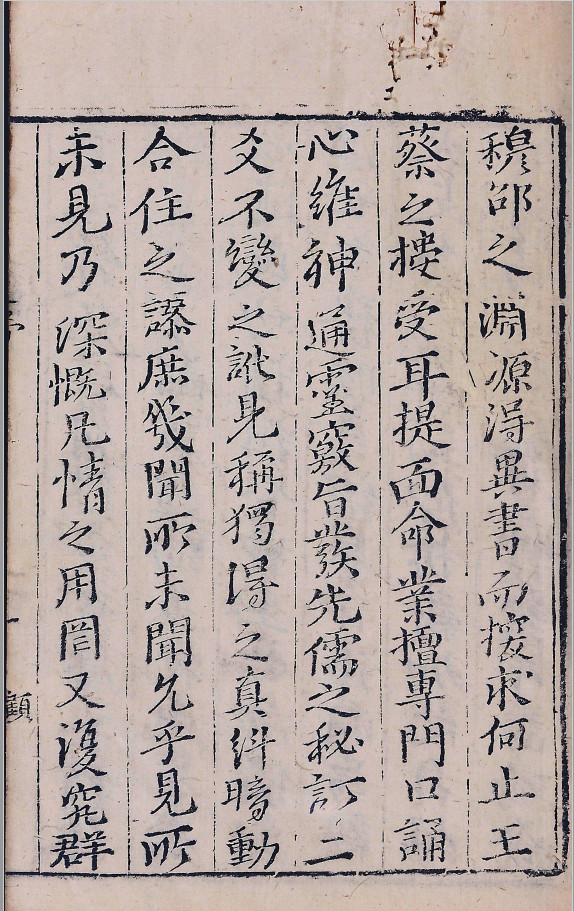 穆邵之淵源得異書而搜求何止王
蔡之摟受耳提面命業擅專門口誦
心維神通靈竅旨發先儒之秘訂二
爻不變之訛見稱獨得之真糾暗動
合住之謬庶幾聞所未聞允乎見所
未見乃深慨凡情之用罔又復究群
一
顧